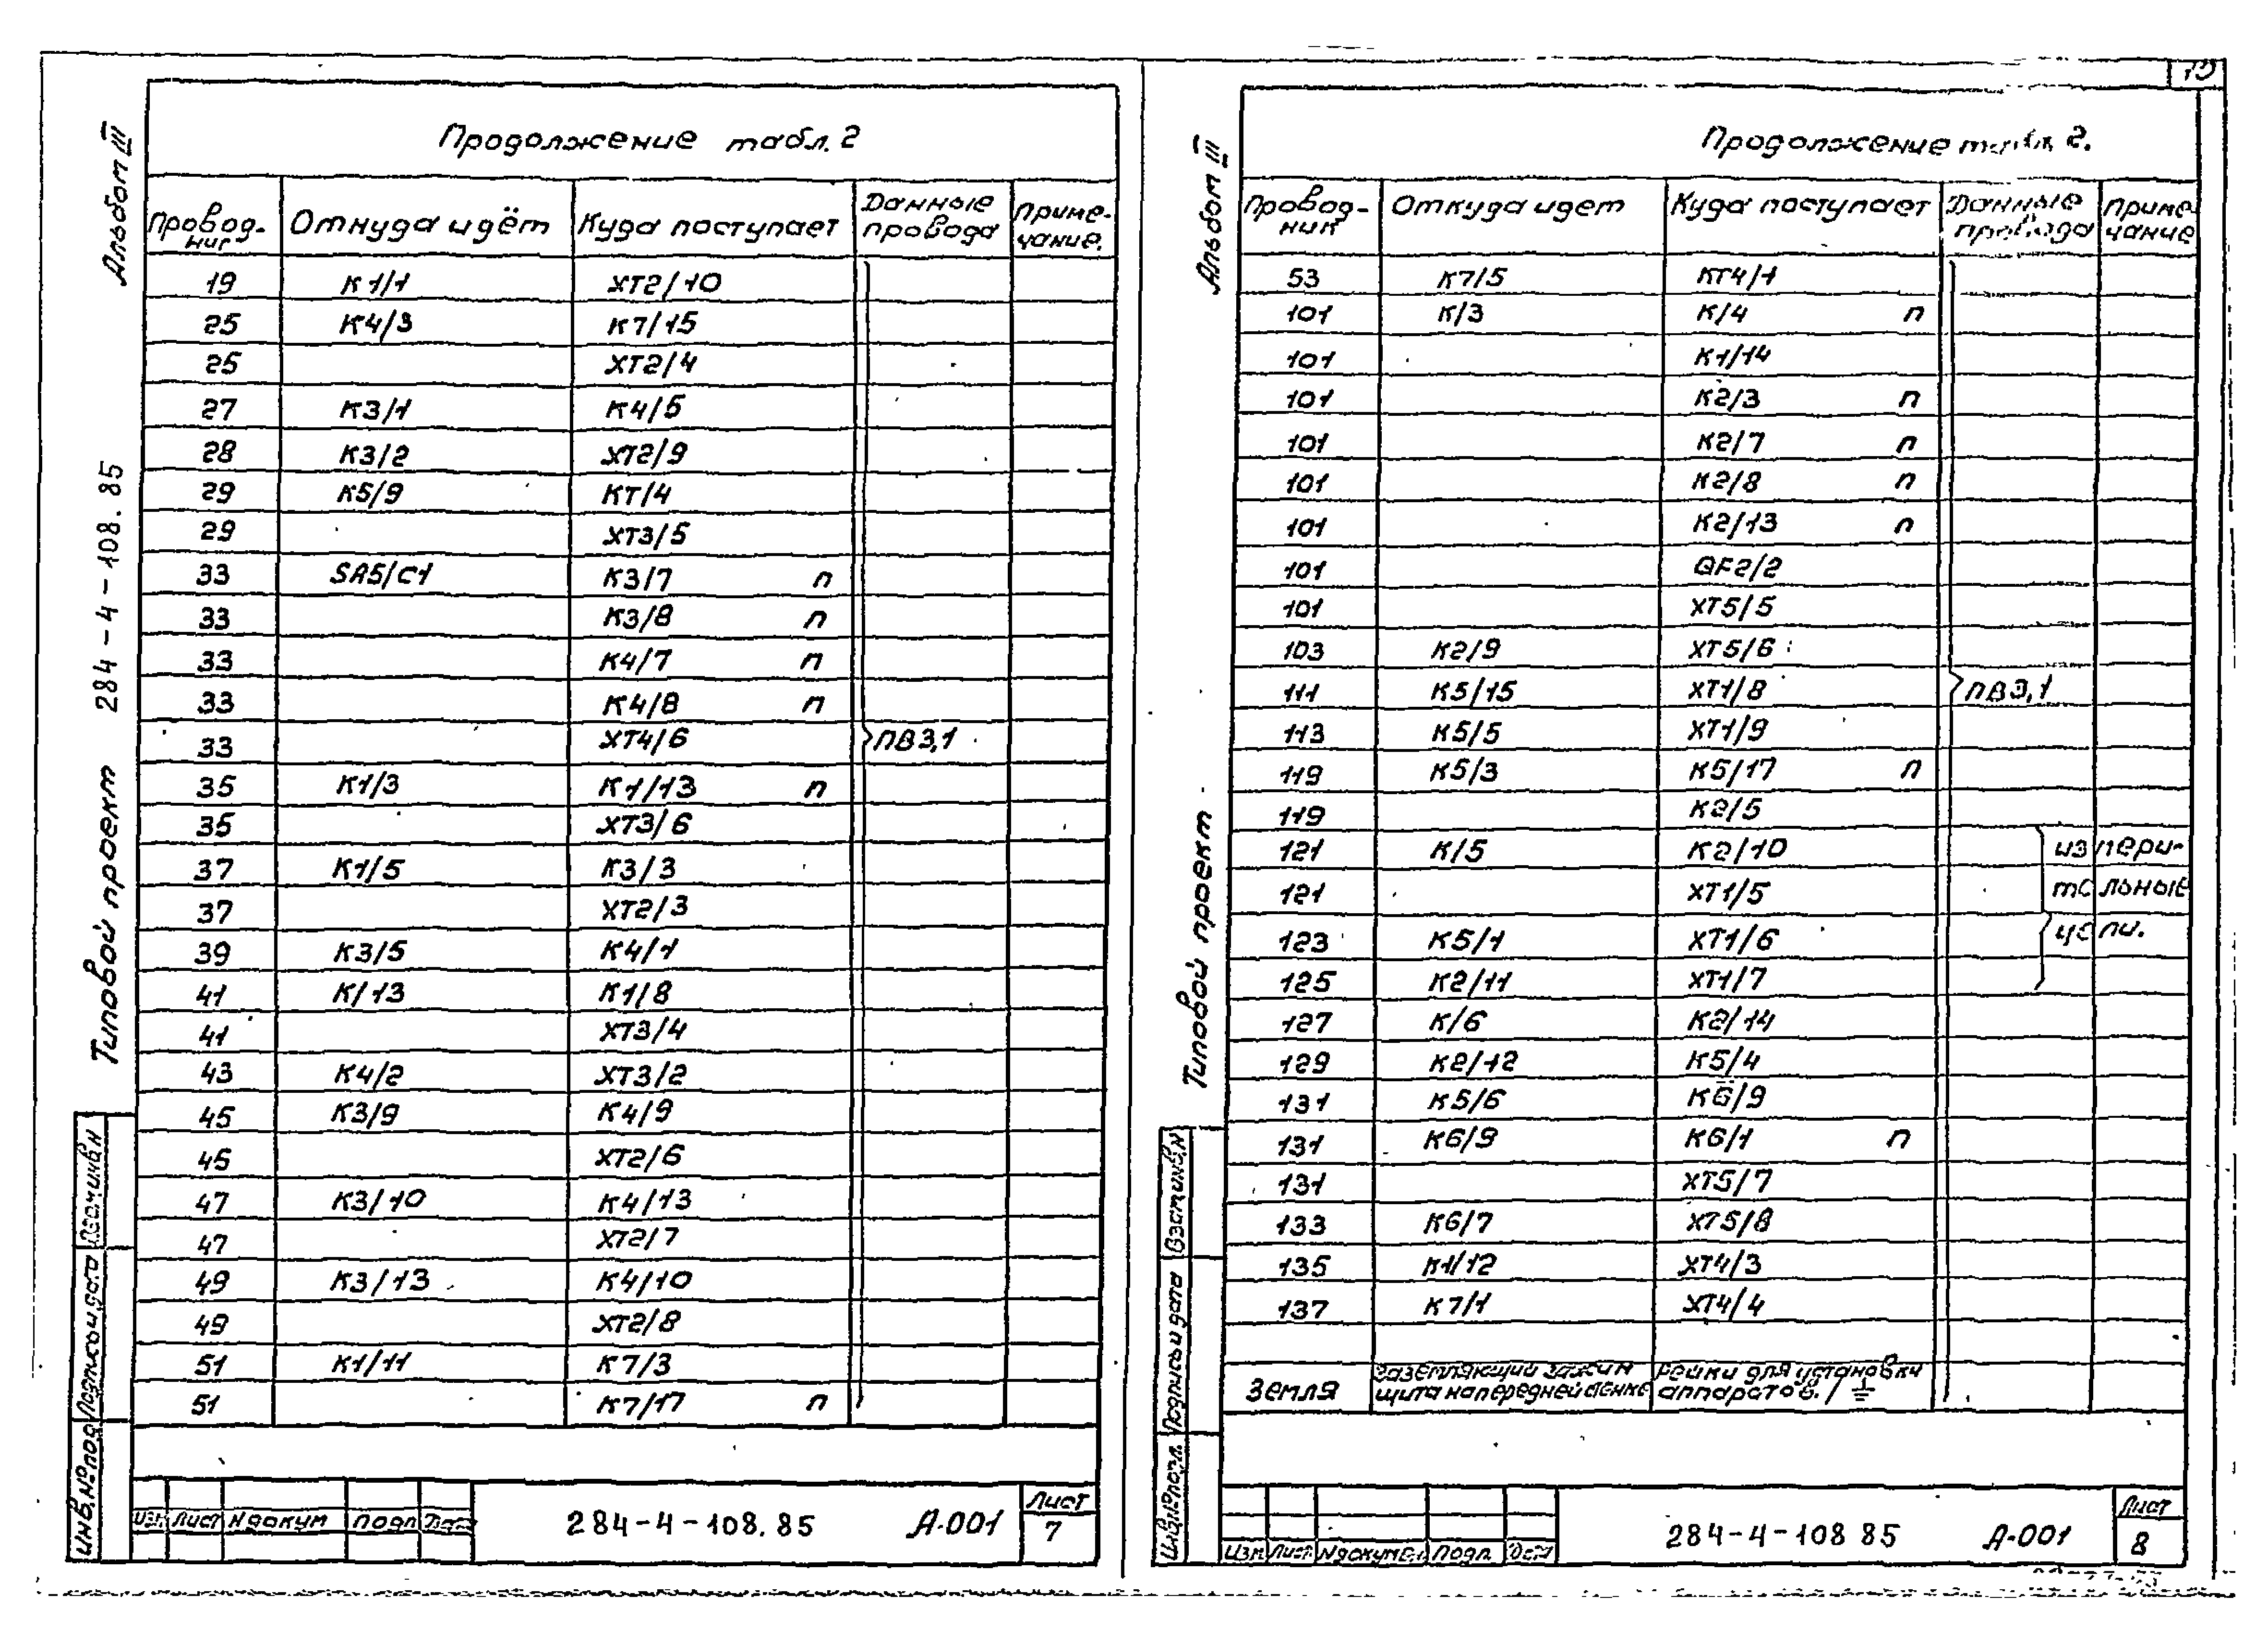 Альбом III
Типовой проект 284-4-108.85
Продолжение табл. 2
Провод-ник Откуда идёт Куда поступает Данные провода Приме-чание.
19 К1/1 ХТ2/10
25 К4/3 К7/15
25 ХТ2/4
27 К3/1 К4/5
28 К3/2 ХТ2/9
29 К5/9 КТ/4
29 ХТ3/5
33 SA5/С1 К3/7 п
33 К3/8 п
33 К4/7 п
33 К4/8 п
33 ХТ4/6 ПВ3,1
35 К1/3 К1/13 п
35 ХТ3/6
37 К1/5 К3/3
37 ХТ2/3
39 К3/5 К4/1
41 К/13 К1/8
41 ХТ3/4
43 К4/2 ХТ3/2
45 К3/9 К4/9
45 ХТ2/6
47 К3/10 К4/13
47 ХТ2/7
49 К3/13 К4/10
49 ХТ2/8
51 К1/11 К7/3
51 К7/17 п
Взам.инв.N
Подпись и дата
Инв.№ подл
Изм Лист N докум Подп Дата
284-4-108.85 А-001
Лист
7
Альбом III
Типовой проект
Продолжение табл. 2.
Провод-ник Откуда идет Куда поступает Данные провода Приме-чание
53 К7/5 КТ4/1
101 К/3 К/4 п
101 К1/14
101 К2/3 п
101 К2/7 п
101 К2/8 п
101 К2/13 п
101 QF2/2
101 ХТ5/5
103 К2/9 ХТ5/6
111 К5/15 ХТ1/8 ПВ3,1
113 К5/5 ХТ1/9
119 К5/3 К5/17 п
119 К2/5
121 К/5 К2/10 измери-
121 ХТ1/5 тельные
123 К5/1 ХТ1/6 цепи.
125 К2/11 ХТ1/7
127 К/6 К2/14
129 К2/12 К5/4
131 К5/6 К6/9
131 К6/9 К6/1 п
131 ХТ5/7
133 К6/7 ХТ5/8
135 К1/12 ХТ4/3
137 К7/1 ХТ4/4
Земля Заземляющий зажим щита на передней стенке рейки для установки аппаратов. / ⏚
Взам.инв.N
Подпись и дата
Инв.№ подл.
Изм Лист N докумен. Подп Дата
284-4-108 85 А-001
Лист
8